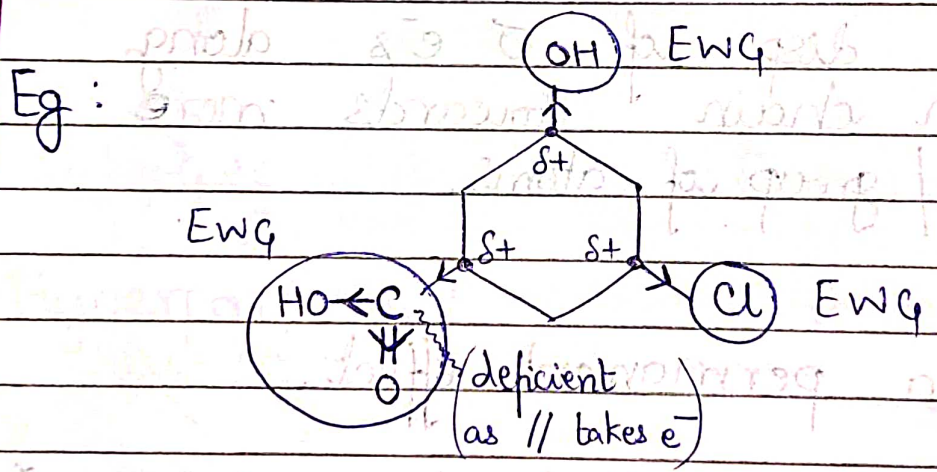 OH EWG
Eg :
δ+
EWG
δ+ δ+
HO C Cl EWG
O (deficient
as // takes e⁻)